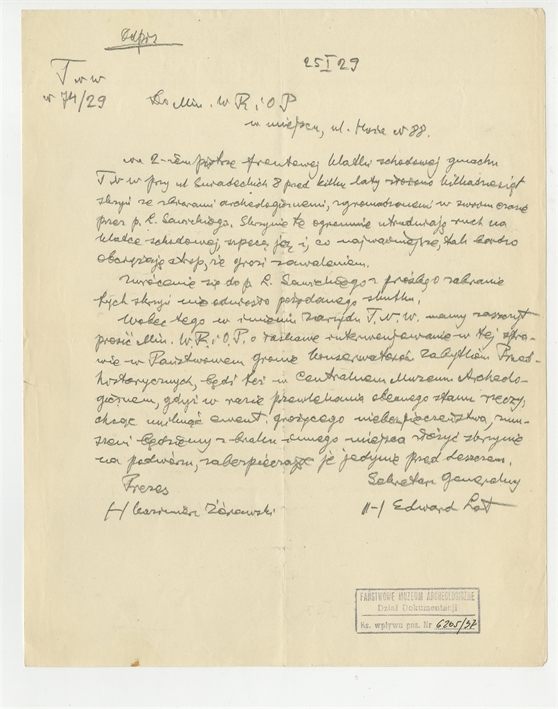 Odpis
25 I 29
T n w
n 74/29
Do Min. W R i O P
w miejscu, ul. Hoża N 88.
Na 2-iem piętrze frontowej klatki schodowej gmachu
T n w przy ul Śniadeckich 8 przed kilku laty złożono kilkadziesiąt
skrzyń ze zbiorami archeologicznemi, zgromadzonemi w swoim czasie
przez p. L. Sawickiego. Skrzynie te ogromnie utrudniają ruch na
klatce schodowej, szpecą ją i, co najważniejsze, tak bardzo
obciążają strop, że grozi zawaleniem.
Zwrócenie się do p L. Sawickiego z prośbą o zabranie
tych skrzyń nie odniosło pożądanego skutku.
Wobec tego w imieniu Zarządu T. N. W. mamy zaszczyt
prosić Min. W. R. i O. P. o łaskawe interwenjowanie w tej spra-
wie w Państwowem gronie konserwatorów Zabytków Przed-
historycznych, bądź też w Centralnem Muzeum Archeolo-
gicznem, gdyż w razie przewlekania obecnego stanu rzeczy,
chcąc uniknąć grożącego niebezpieczeństwa, zmu-
szeni będziemy z braku innego miejsca złożyć skrzynie
na podwórzu, zabezpieczając je jedynie przed deszczem.
Prezes
Sekretarz Generalny
(-) Kazimierz Żórawski
(-) Edward Loth
PAŃSTWOWE MUZEUM ARCHEOLOGICZNE
Dział Dokumentacji
Ks. wpływu poz. Nr 6205/37